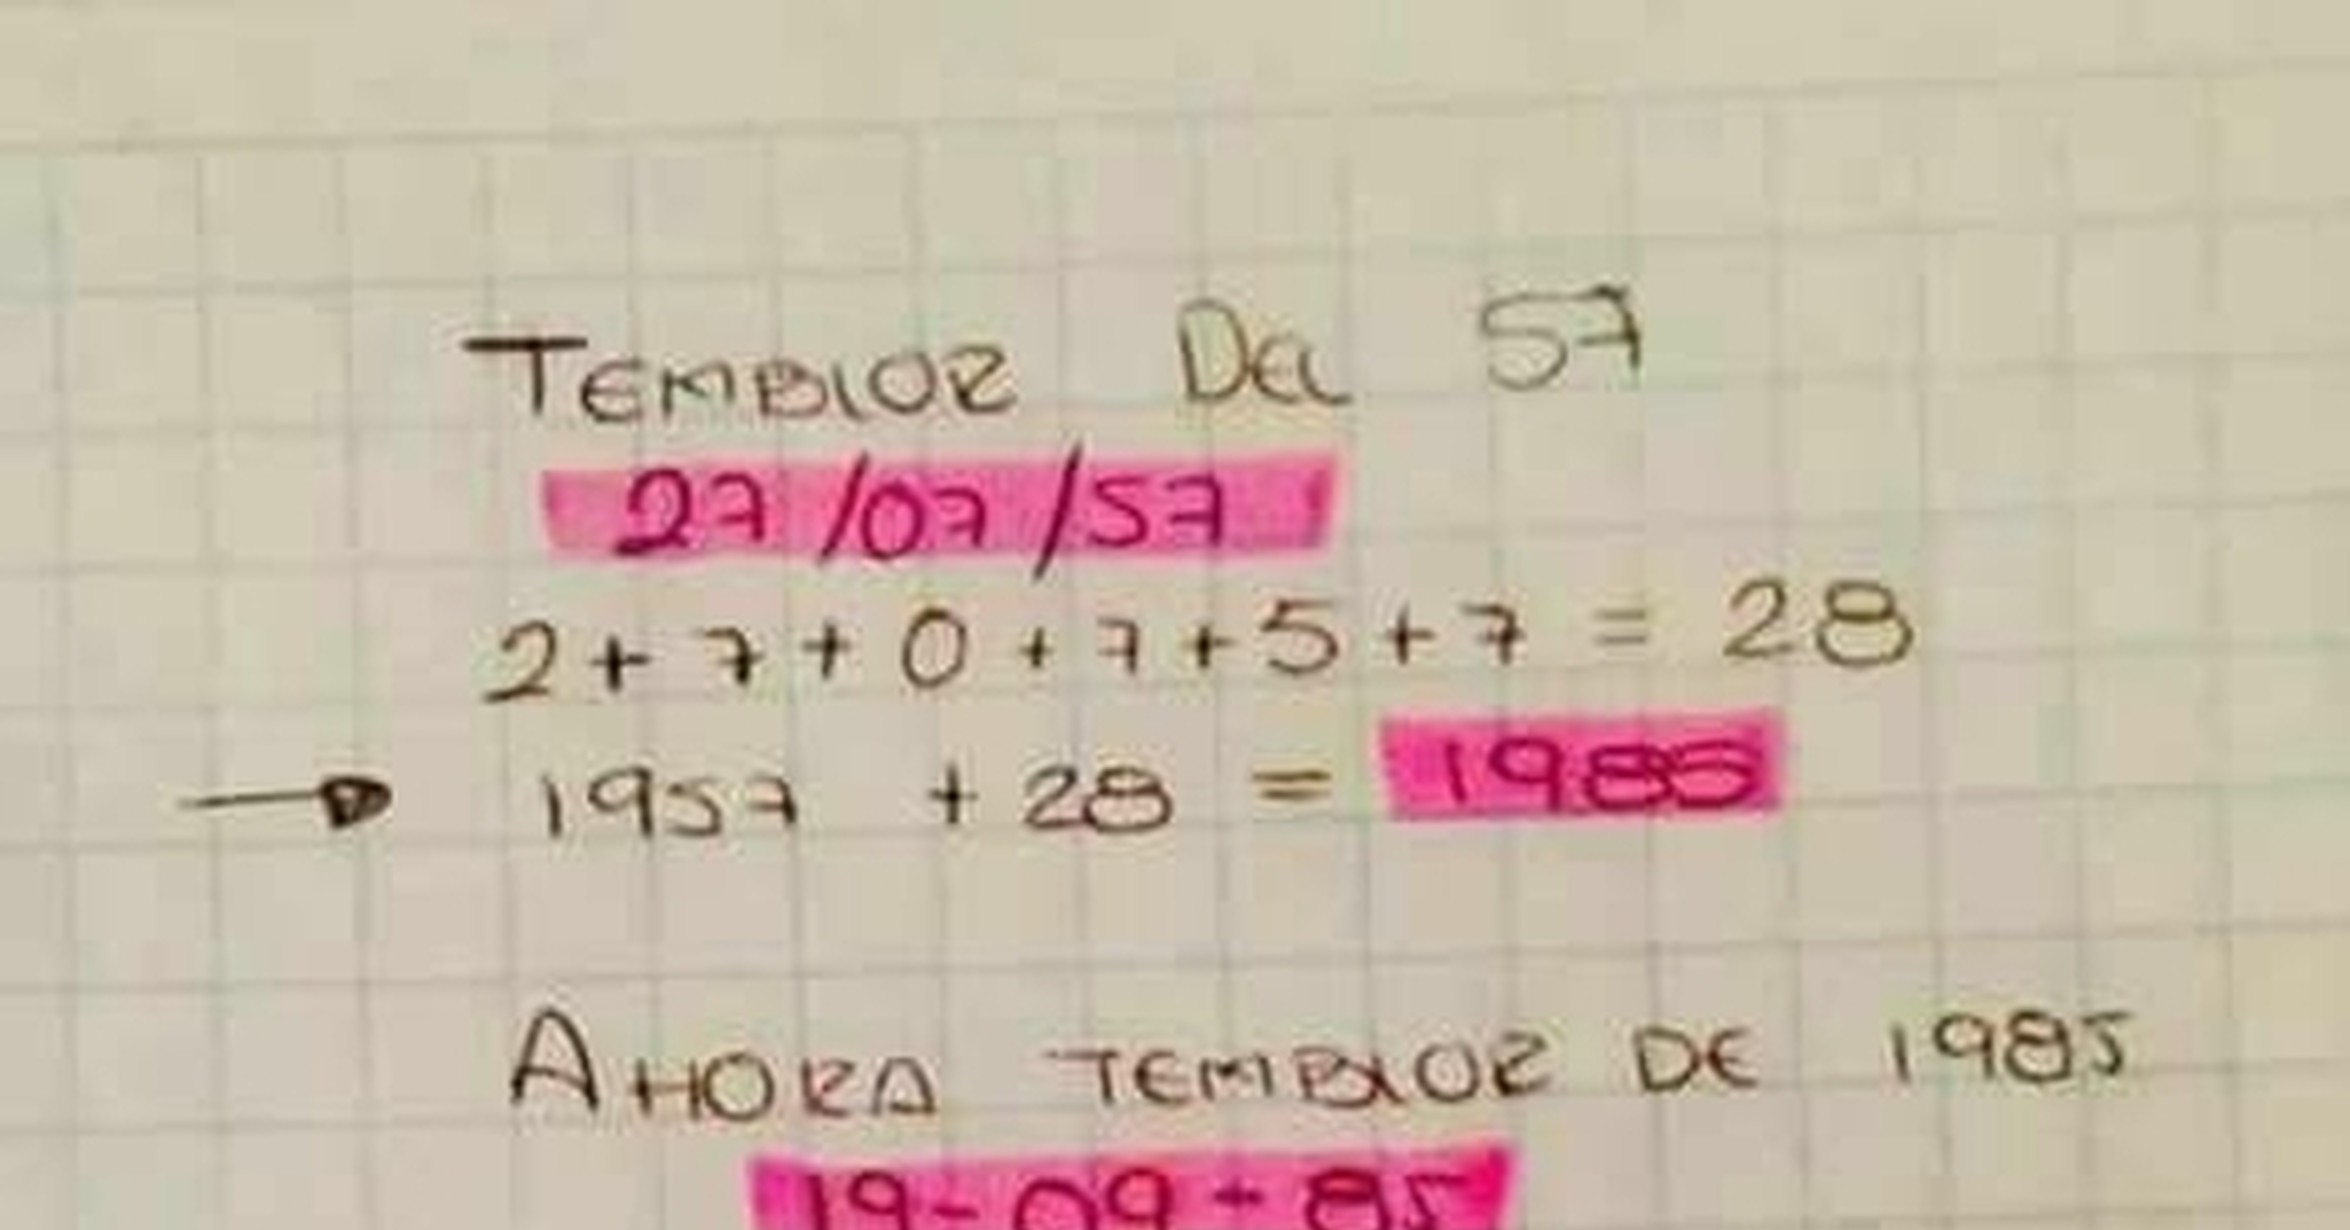 TEMBlOR DEl 57
27/07/57
2+7+0+7+5+7 = 28
→ 1957 + 28 = 1985
AHORA TEMBlOR DE 1985
19-09-85